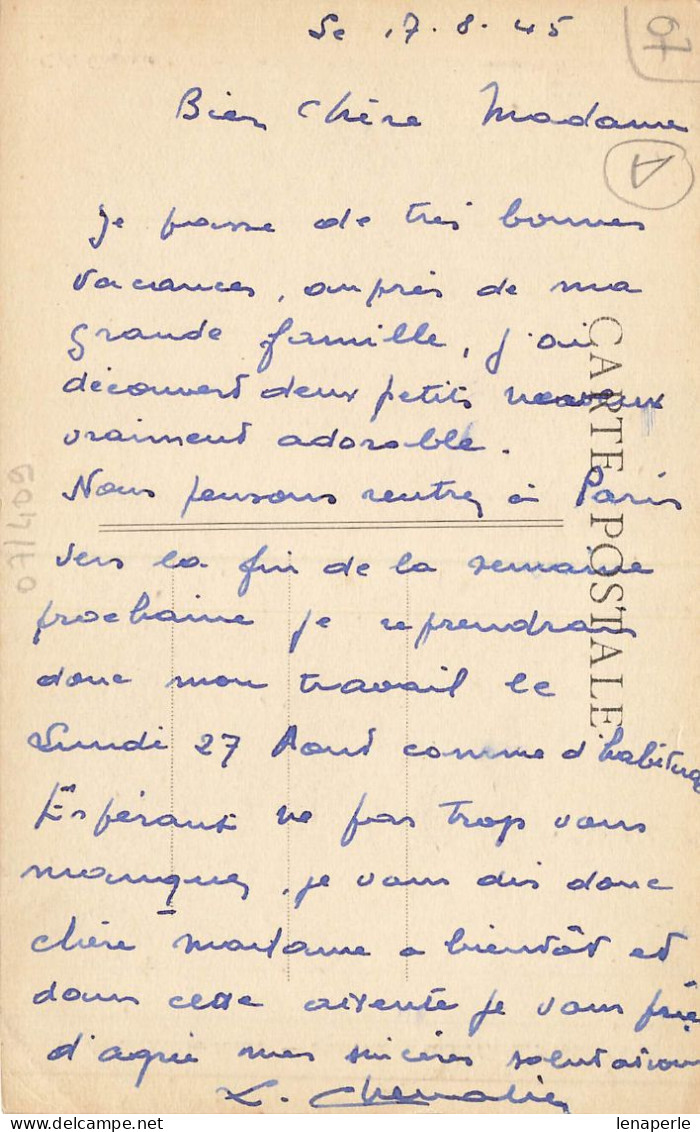 Le 17.8.45
67
A
Bien Chère Madame
Je passe de très bonnes
vacances, auprès de ma
grande famille, j'ai
découvert deux petits neveux
vraiment adorable.
Nous pensons rentrer à Paris
vers la fin de la semaine
prochaine je reprendrais
donc mon travail le
Lundi 27 Aout comme d'habitude
Espérant ne pas trop vous
manquer, je vous dis donc
chère madame a bientôt et
dans cette attente je vous prie
d'agrée mes sincères salutations
L. Chevalier
CARTE POSTALE
07/409
lenaperle